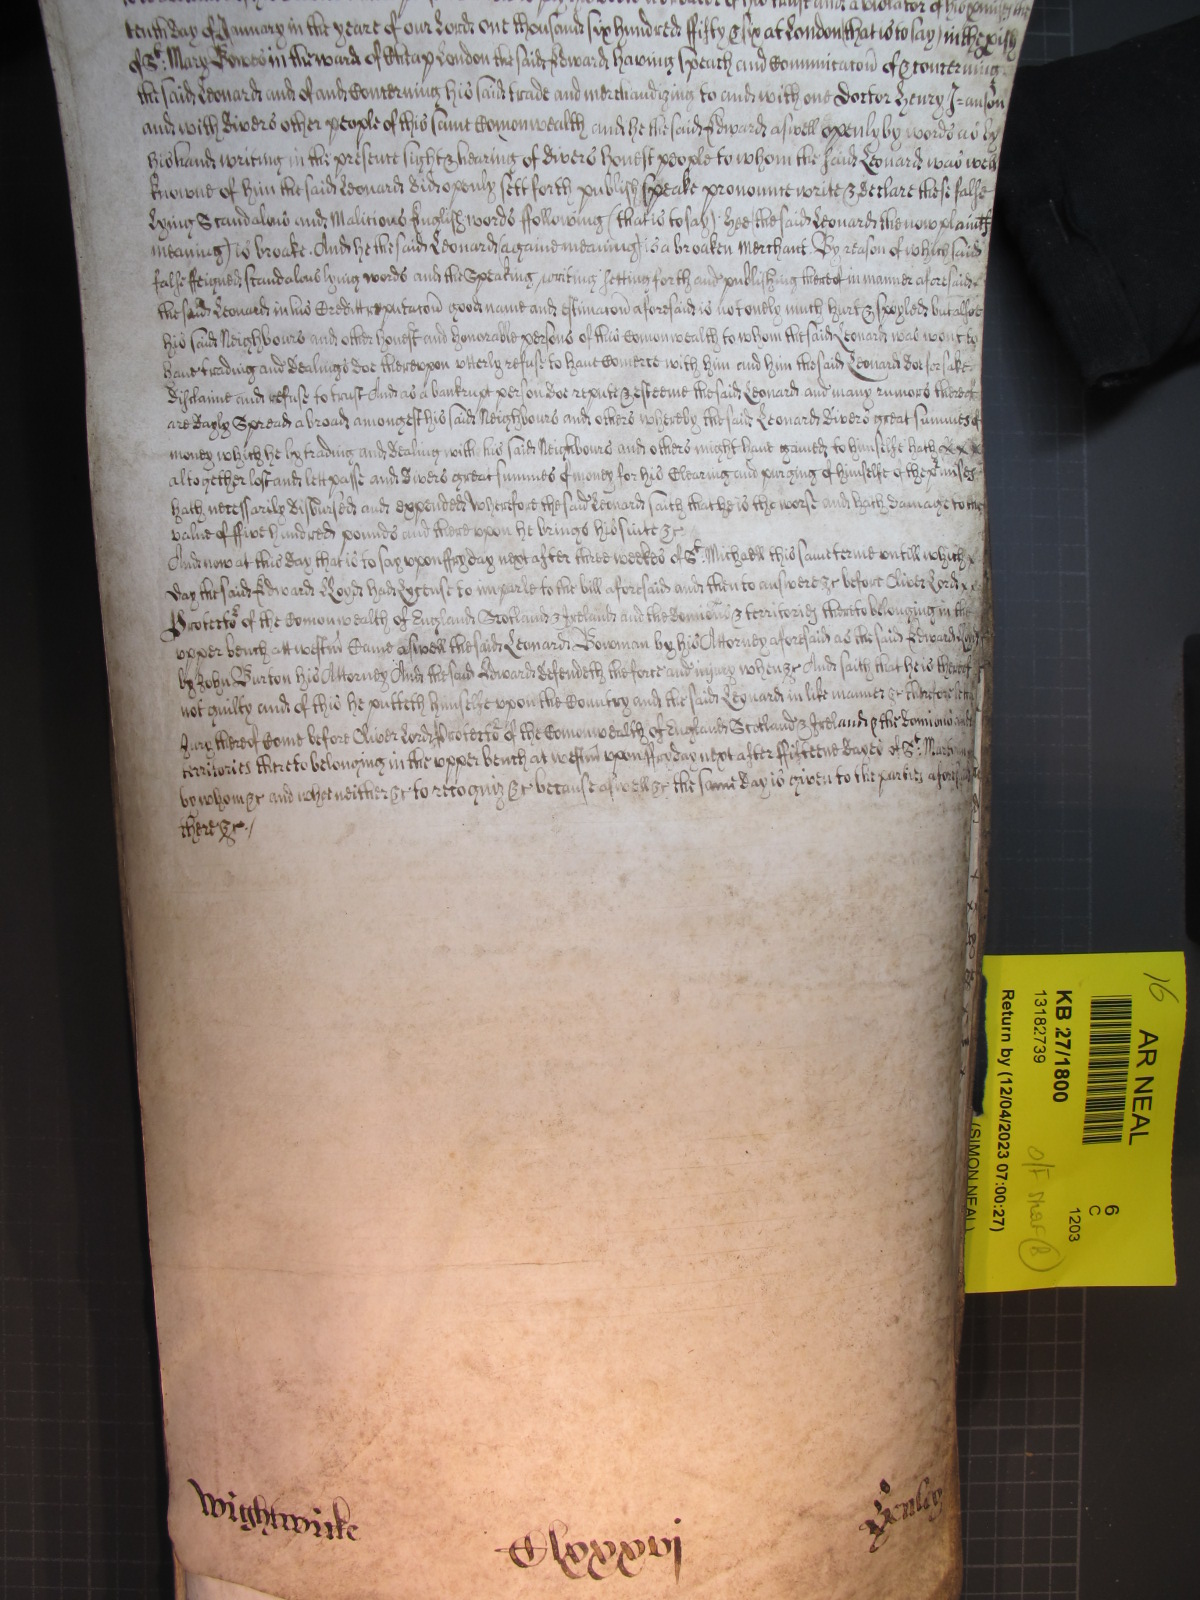 tenth day of January in the yeare of our Lord one thousand six hundred fifty & six at London (that is to say) in the pish
of St. Mary Bowes in the ward of Cheap London the said Edward having speach and Communicatiō of & concerning
the said Leonard and of and Concerning his said trade and merchandizing to and with one Doctor Henry
and with divers other people of this same Comonwealth and he the said Edward aswell openly by words as by
his hand writing in the presence sight & hearing of divers honest people to whom the said Leonard was well
knowne of him the said Leonard did openly sett forth publish speake pronounce write & declare these false
lying Scandalous and Malitious English words ffollowing (that is to say) Hee (the said Leonard the now plaintff
meaning) is broake. And he the said Leonard (againe meaning) is a broaken Merchant. By reason of which said
false ffeigned scandalous lying words and the Speaking writing setting forth and publishing thereof in manner aforesaid
the said Leonard in his Creditt reputacoñ good name and estimacoñ aforesaid is not onely much hurt & spoyled but alsoe
his said Neighbours and other honest and honorable persons of this Comonwealth to whom the said Leonard was wont to
have trading and dealings doe thereupon utterly refuse to have Comerce with him and him the said Leonard doe forsake
disclaime and refuse to trust And as a bankrupt person doe repute & esteeme the said Leonard and many rumors thereof
are dayly Spread abroad amongest his said Neighbours and others whereby the said Leonard divers great summes of
money which he by trading and dealing with his said Neighbours and others might have gained to himselfe hath
altogether lost and lett passe and divers great summes of money for his Clearing and purging of himselfe of the pmisses
hath necessarily disbursed and expended Wherefore the said Leonard saith that he is the worse and hath damage to the
value of ffive hundred pounds and thereupon he brings his suite &c
And now at this day that is to say upon ffryday next after three weekes of St. Michaell this same terme untill which
day the said Edward Lloyd had Lycense to imparle to the bill aforesaid and then to answere &c before Oliver Lord
Protector of the Comonwealth of England Scotland & Ireland and the dominions & territories thereto belonging in the
upper bench att Westm̄ Came aswell the said Leonard Bowman by his Attorney aforesaid as the said Edward
by John Burton his Attorney And the said Edward defendeth the force and injury when &c And saith that he is thereof
not guilty and of this he putteth himselfe upon the Country and the said Leonard in like manner &c Therefore lett a
Jury thereof Come before Oliver Lord Protector of the Comonwealth of England Scotland & Ireland & the dominions and
territories thereto belonging in the upper bench at Westm̄ upon ffryday next after fifteene dayes of St. Martin
by whom &c and whoe neither &c to recogniz &c because aswell &c the same day is given to the parties aforesaid
there &c./
Wightwicke
Clxxxvj
Henley
16
AR NEAL
KB 27/1800
13182739
Return by (12/04/2023 07:00:27)
6
C
1203
(SIMON NEAL)